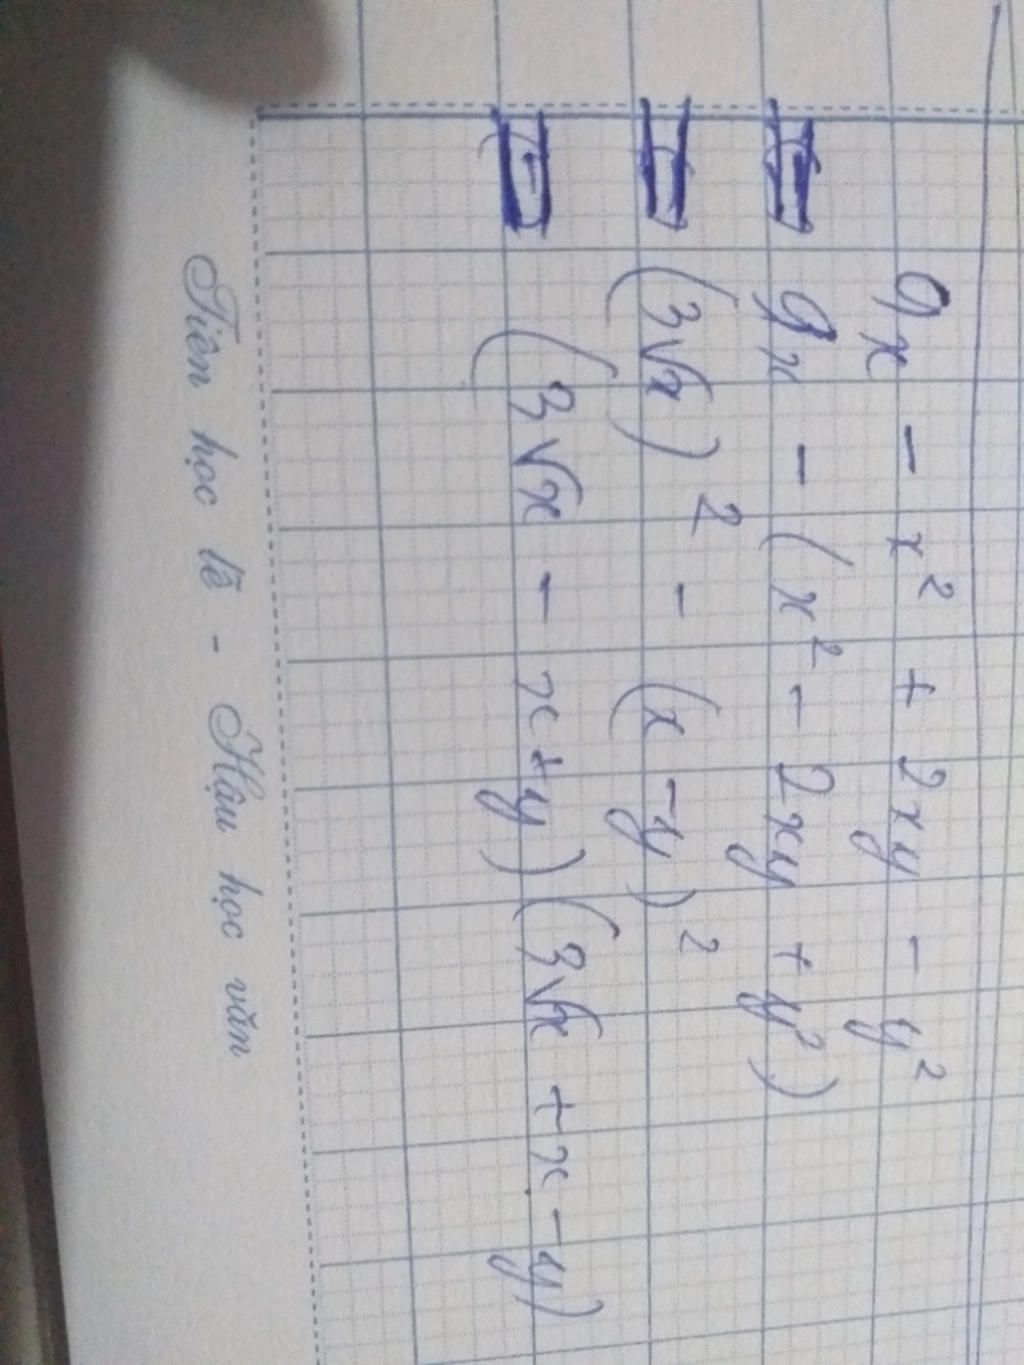 9x - x² + 2xy - y²
= 9x - (x² - 2xy + y²)
= (3√x)² - (x - y)²
= (3√x - x + y)(3√x + x - y)
Tiên học lễ - Hậu học văn